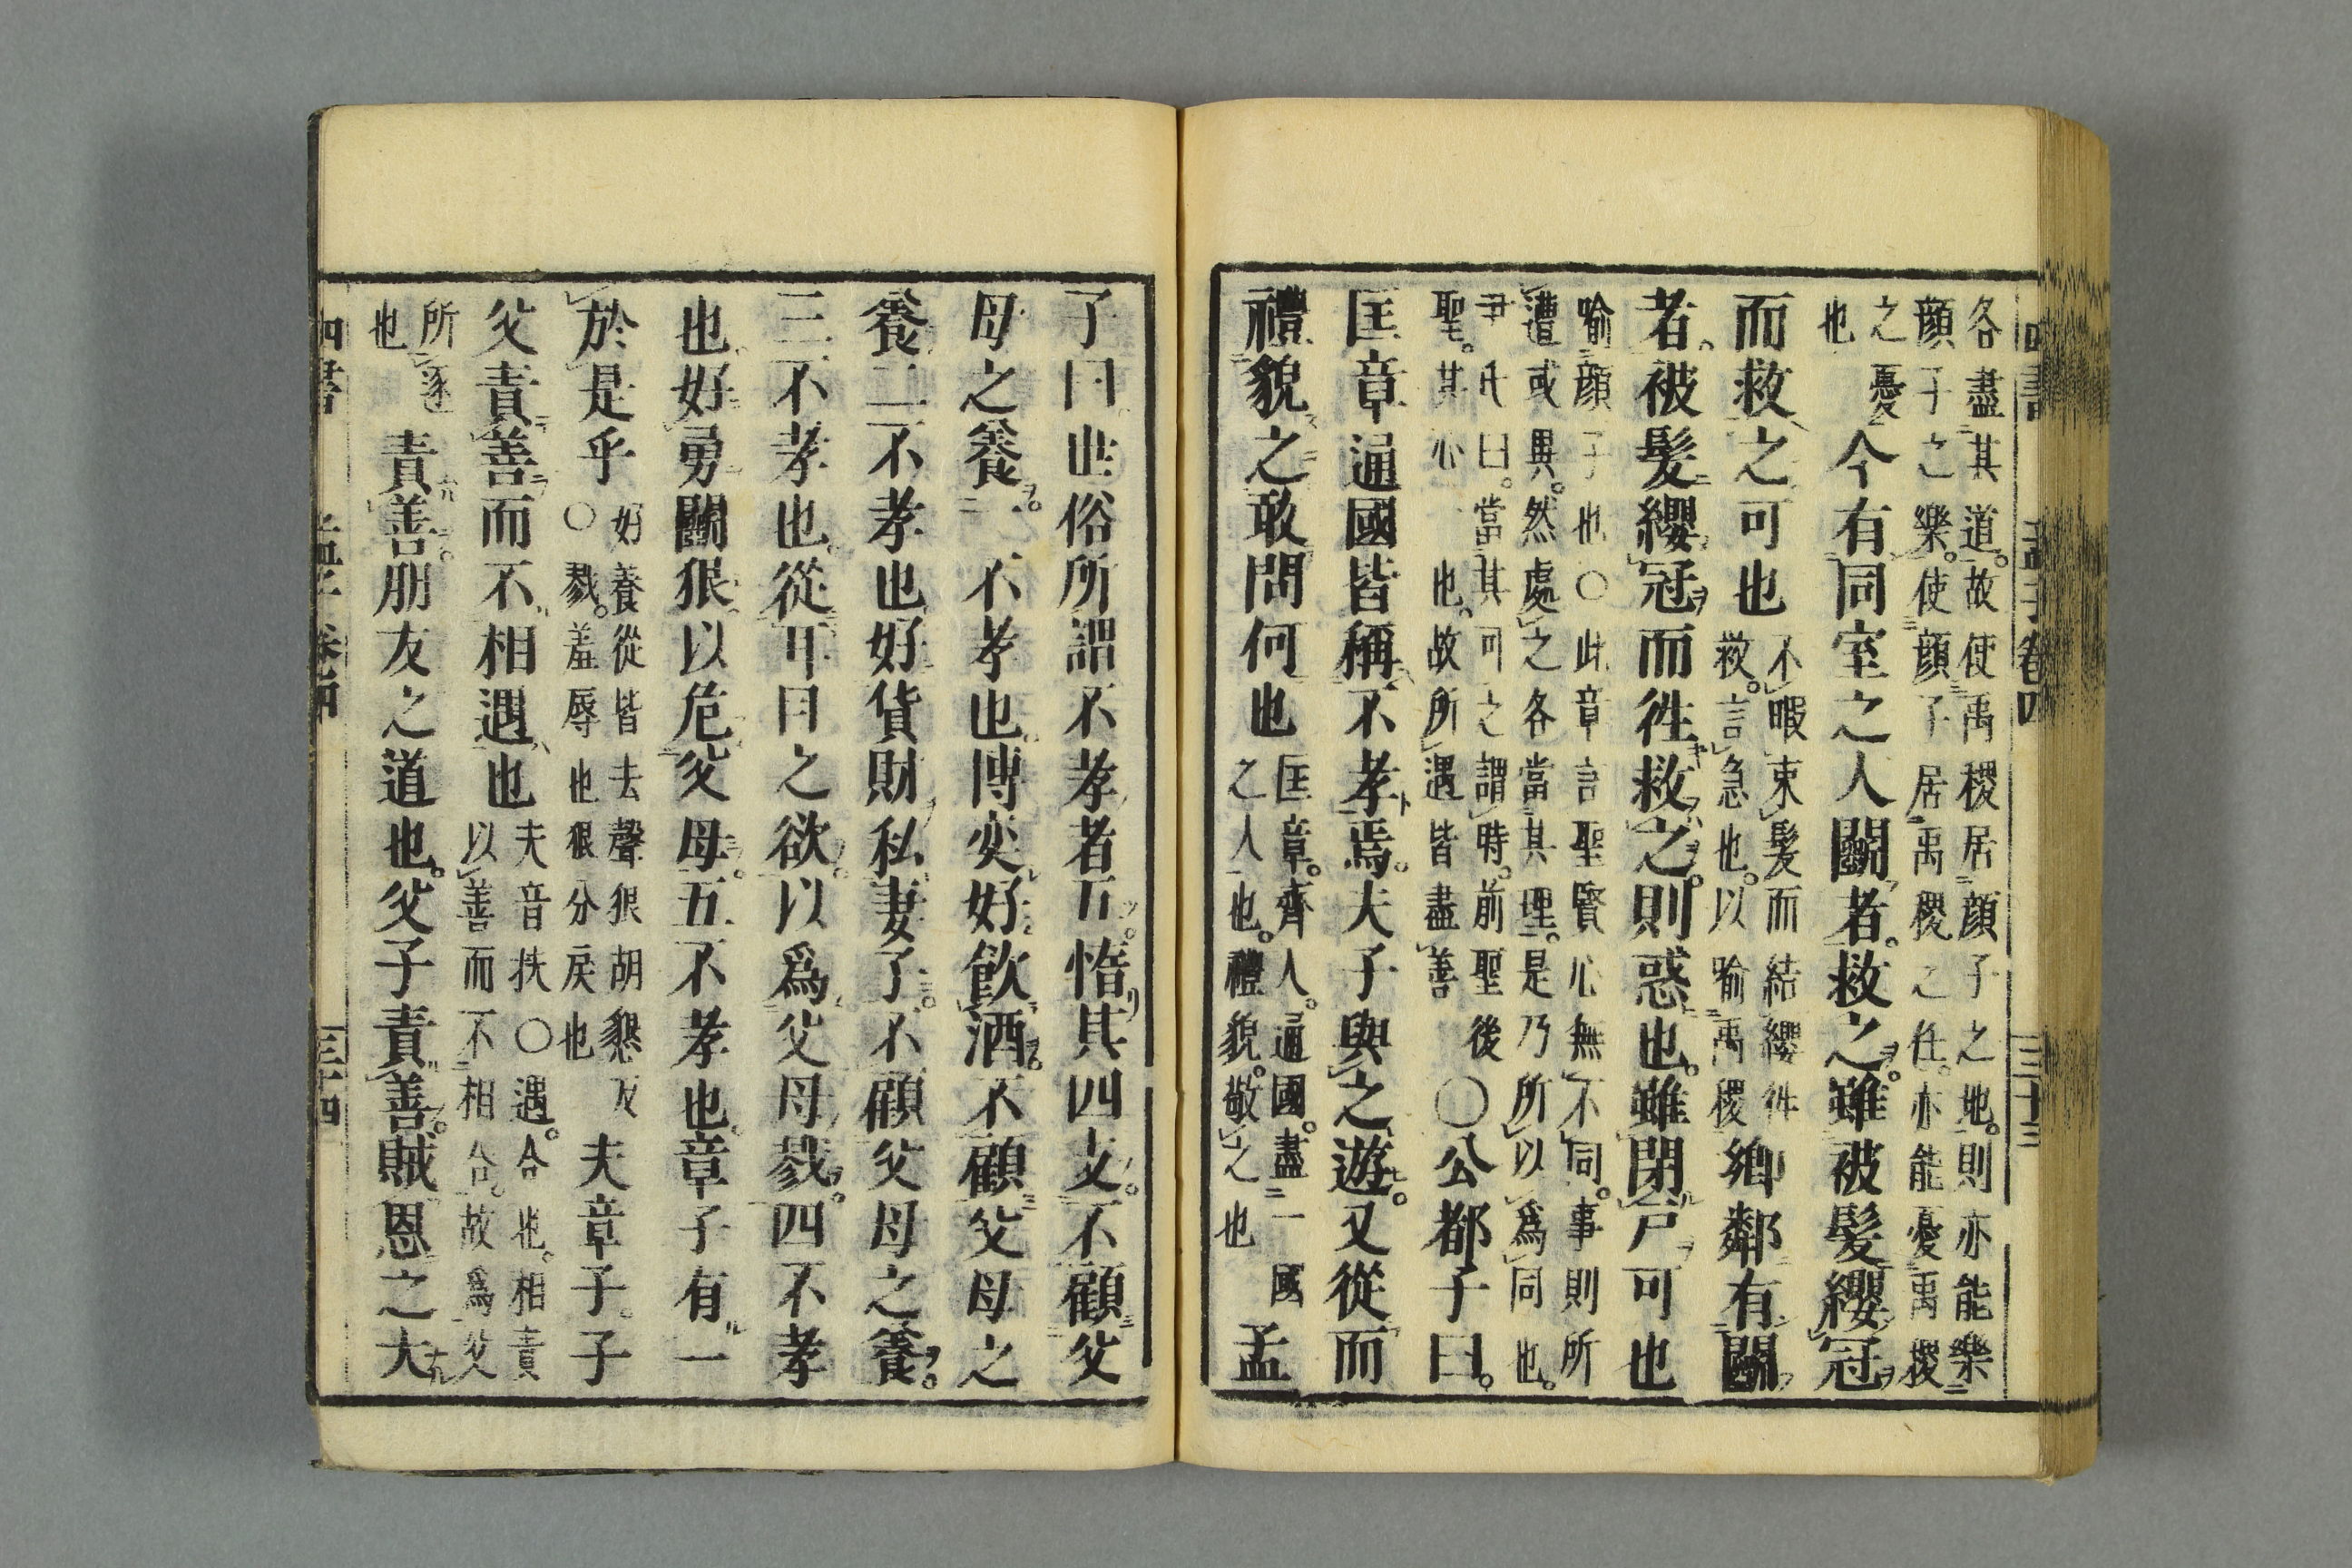 各盡其道。故使禹稷居顔子之地。則亦能樂
顔子之樂。使顔子居禹稷之任。亦能憂禹稷
之憂
也
今有同室之人鬭者。救之。雖被髮纓冠
而救之可也
不暇束髮而結纓往
救。言急也。以喻禹稷
鄉鄰有鬭
者。被髮纓冠而徃救之。則惑也。雖閉戸可也
喻顔子也○此章言聖賢心無不同。事則所
遭或異。然處之各當其理。是乃所以爲同也。
尹氏曰。當其可之謂時。前聖後
聖。其心一也。故所遇皆盡善
○公都子曰。
匡章通國皆稱不孝焉。夫子與之遊。又從而
禮貌之敢問何也
匡章。齊人。通國。盡一國
之人也。禮貌。敬之也
孟
子曰世俗所謂不孝者五。惰其四支。不顧父
母之養。一不孝也。博奕好飲酒。不顧父母之
養二不孝也好貨財私妻子。不顧父母之養。
三不孝也。從耳目之欲。以爲父母戮。四不孝
也。好勇鬭狠。以危父母。五不孝也。章子有一
於是乎
好養從皆去聲狠胡懇反
○戮。羞辱也狠分戾也
夫章子。子
父責善而不相遇也
夫音扶○遇。合也。相責
以善而不相合。故爲父
所逐
也
責善。朋友之道也。父子責善。賊恩之大
四書
孟子卷四
三十三
四書
孟子卷四
三十四